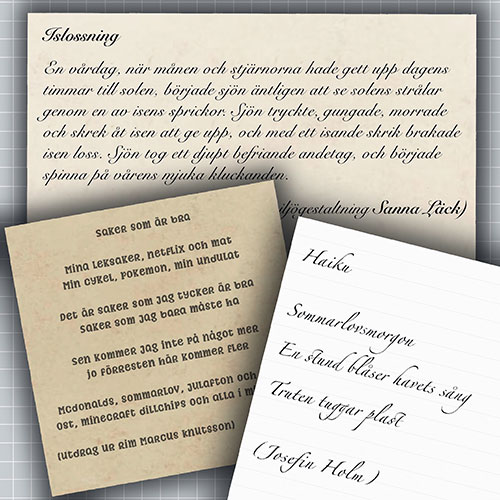 Islossning
En vårdag, när månen och stjärnorna hade gett upp dagens
timmar till solen, började sjön äntligen att se solens strålar
genom en av isens sprickor. Sjön tryckte, gungade, morrade
och skrek åt isen att ge upp, och med ett isande skrik brakade
isen loss. Sjön tog ett djupt befriande andetag, och började
spinna på vårens mjuka kluckanden.
Sanna Läck)
Saker som är bra
Mina leksaker, netflix och mat
Min cykel, pokemon, min undulat
Det är saker som jag tycker är bra
Saker som jag bara måste ha
Sen kommer jag inte på något mer
jo förresten här kommer fler
Mcdonalds, sommarlov, julafton och
Ost, minecraft dillchips och alla i
(utdrag ur Rim Marcus Knutsson)
Haiku
Sommarlovsmorgon
En stund blåser havets sång
Truten tuggar plast
(Josefin Holm)